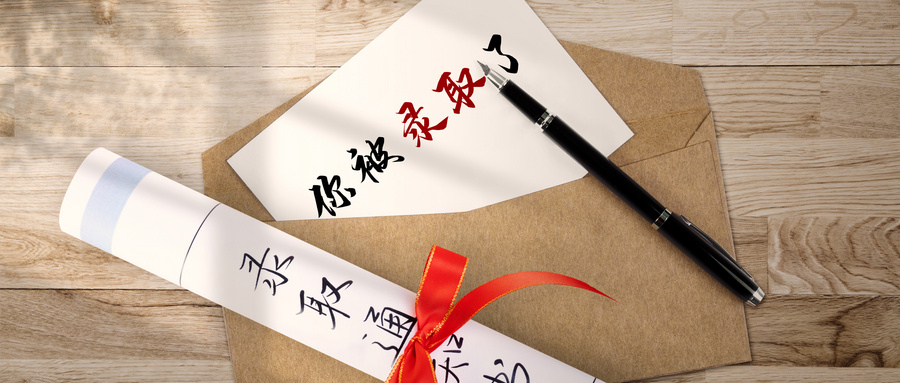 你被录取了
录取通知书